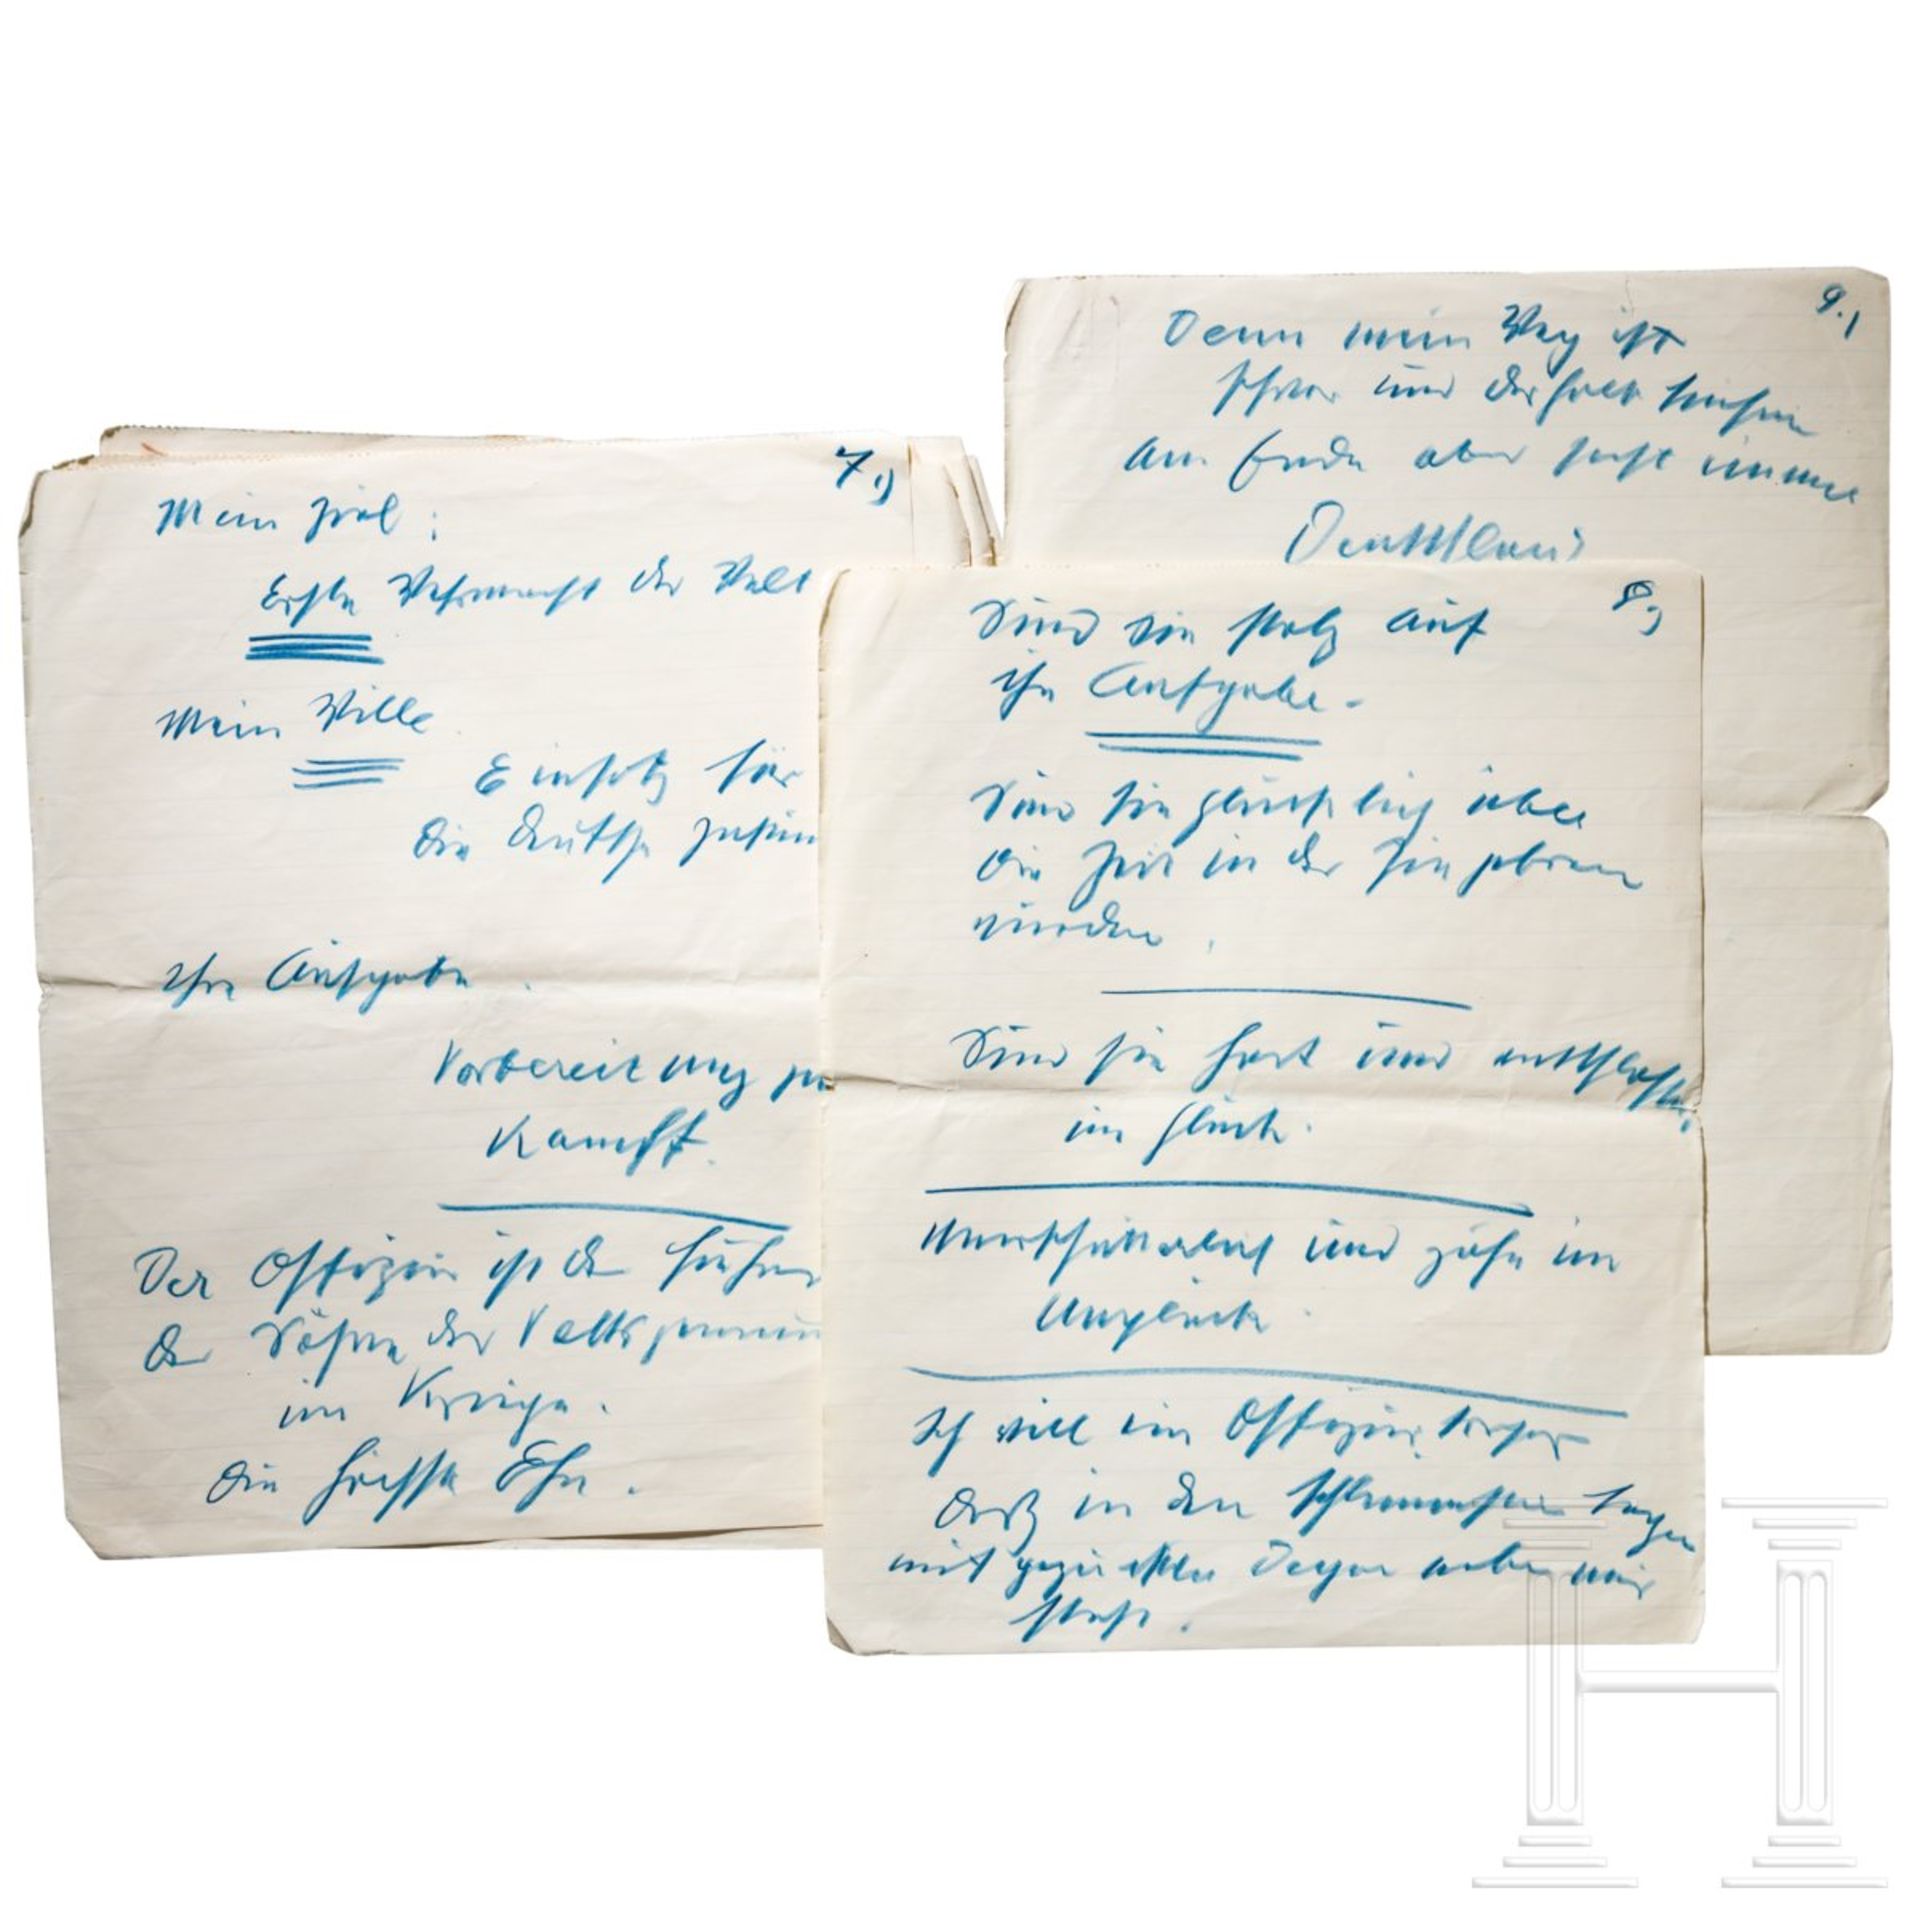 7.)
Mein Ziel:
Erste Wehrmacht der Welt
Mein Wille
Einsatz für
die deutsche
Ihre Aufgabe.
Vorbereitung zu
Kampf.
Der Offizier ist der Führer
der Söhne der
im Kriege.
Die höchste Ehre.
8.)
Sind Sie stolz auf
ihre Aufgabe.
Sind Sie glücklich über
die Zeit in der Sie geboren
wurden.
Sind Sie hart und entschlossen
im Glück.
Unerschütterlich und zähe im
Unglück.
Ich will ein Offizierskorps
daß in den schlimmsten Tagen
mit gezückten Degen neben mir
steht.
9.)
Denn mein Weg ist
schwer und
am Ende aber steht immer
Deutschland